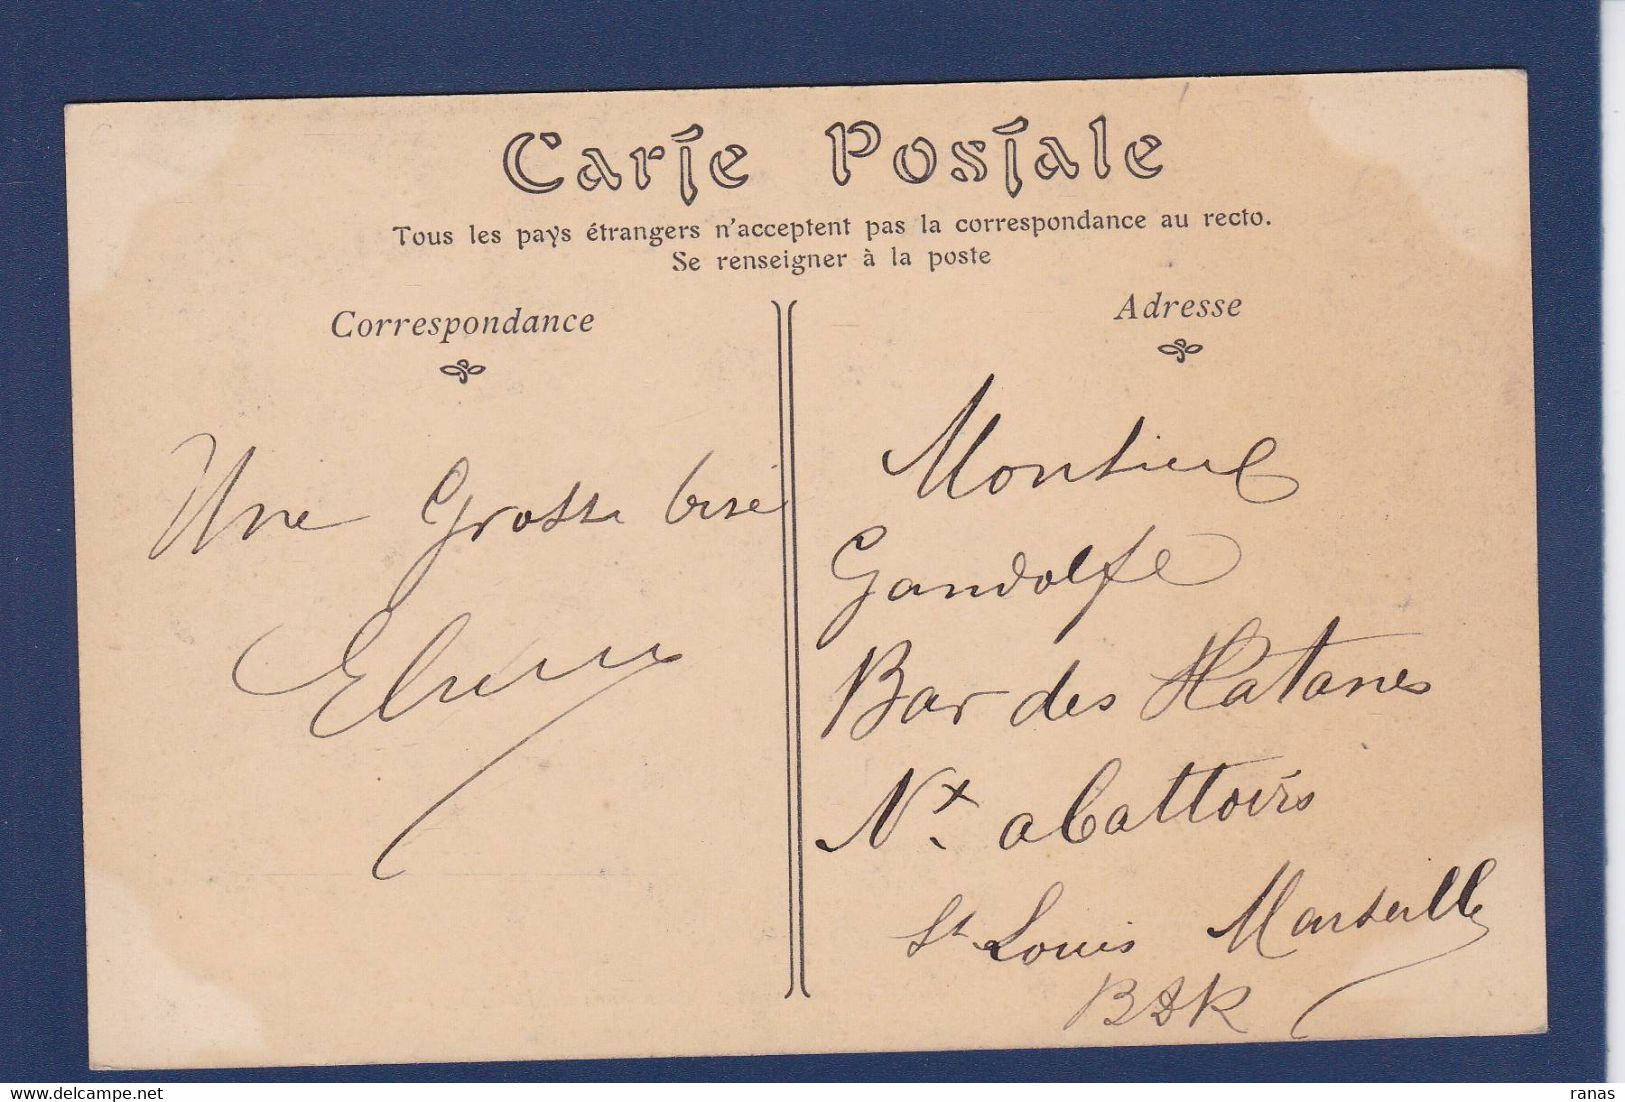 Carte Postale
Tous les pays étrangers n'acceptent pas la correspondance au recto.
Se renseigner à la poste
Correspondance
Adresse
Une Grosse bise
Monsieur
Gandolfe
Bar des Platanes
Nx abattoirs
St Louis Marseille
BDR
ranas